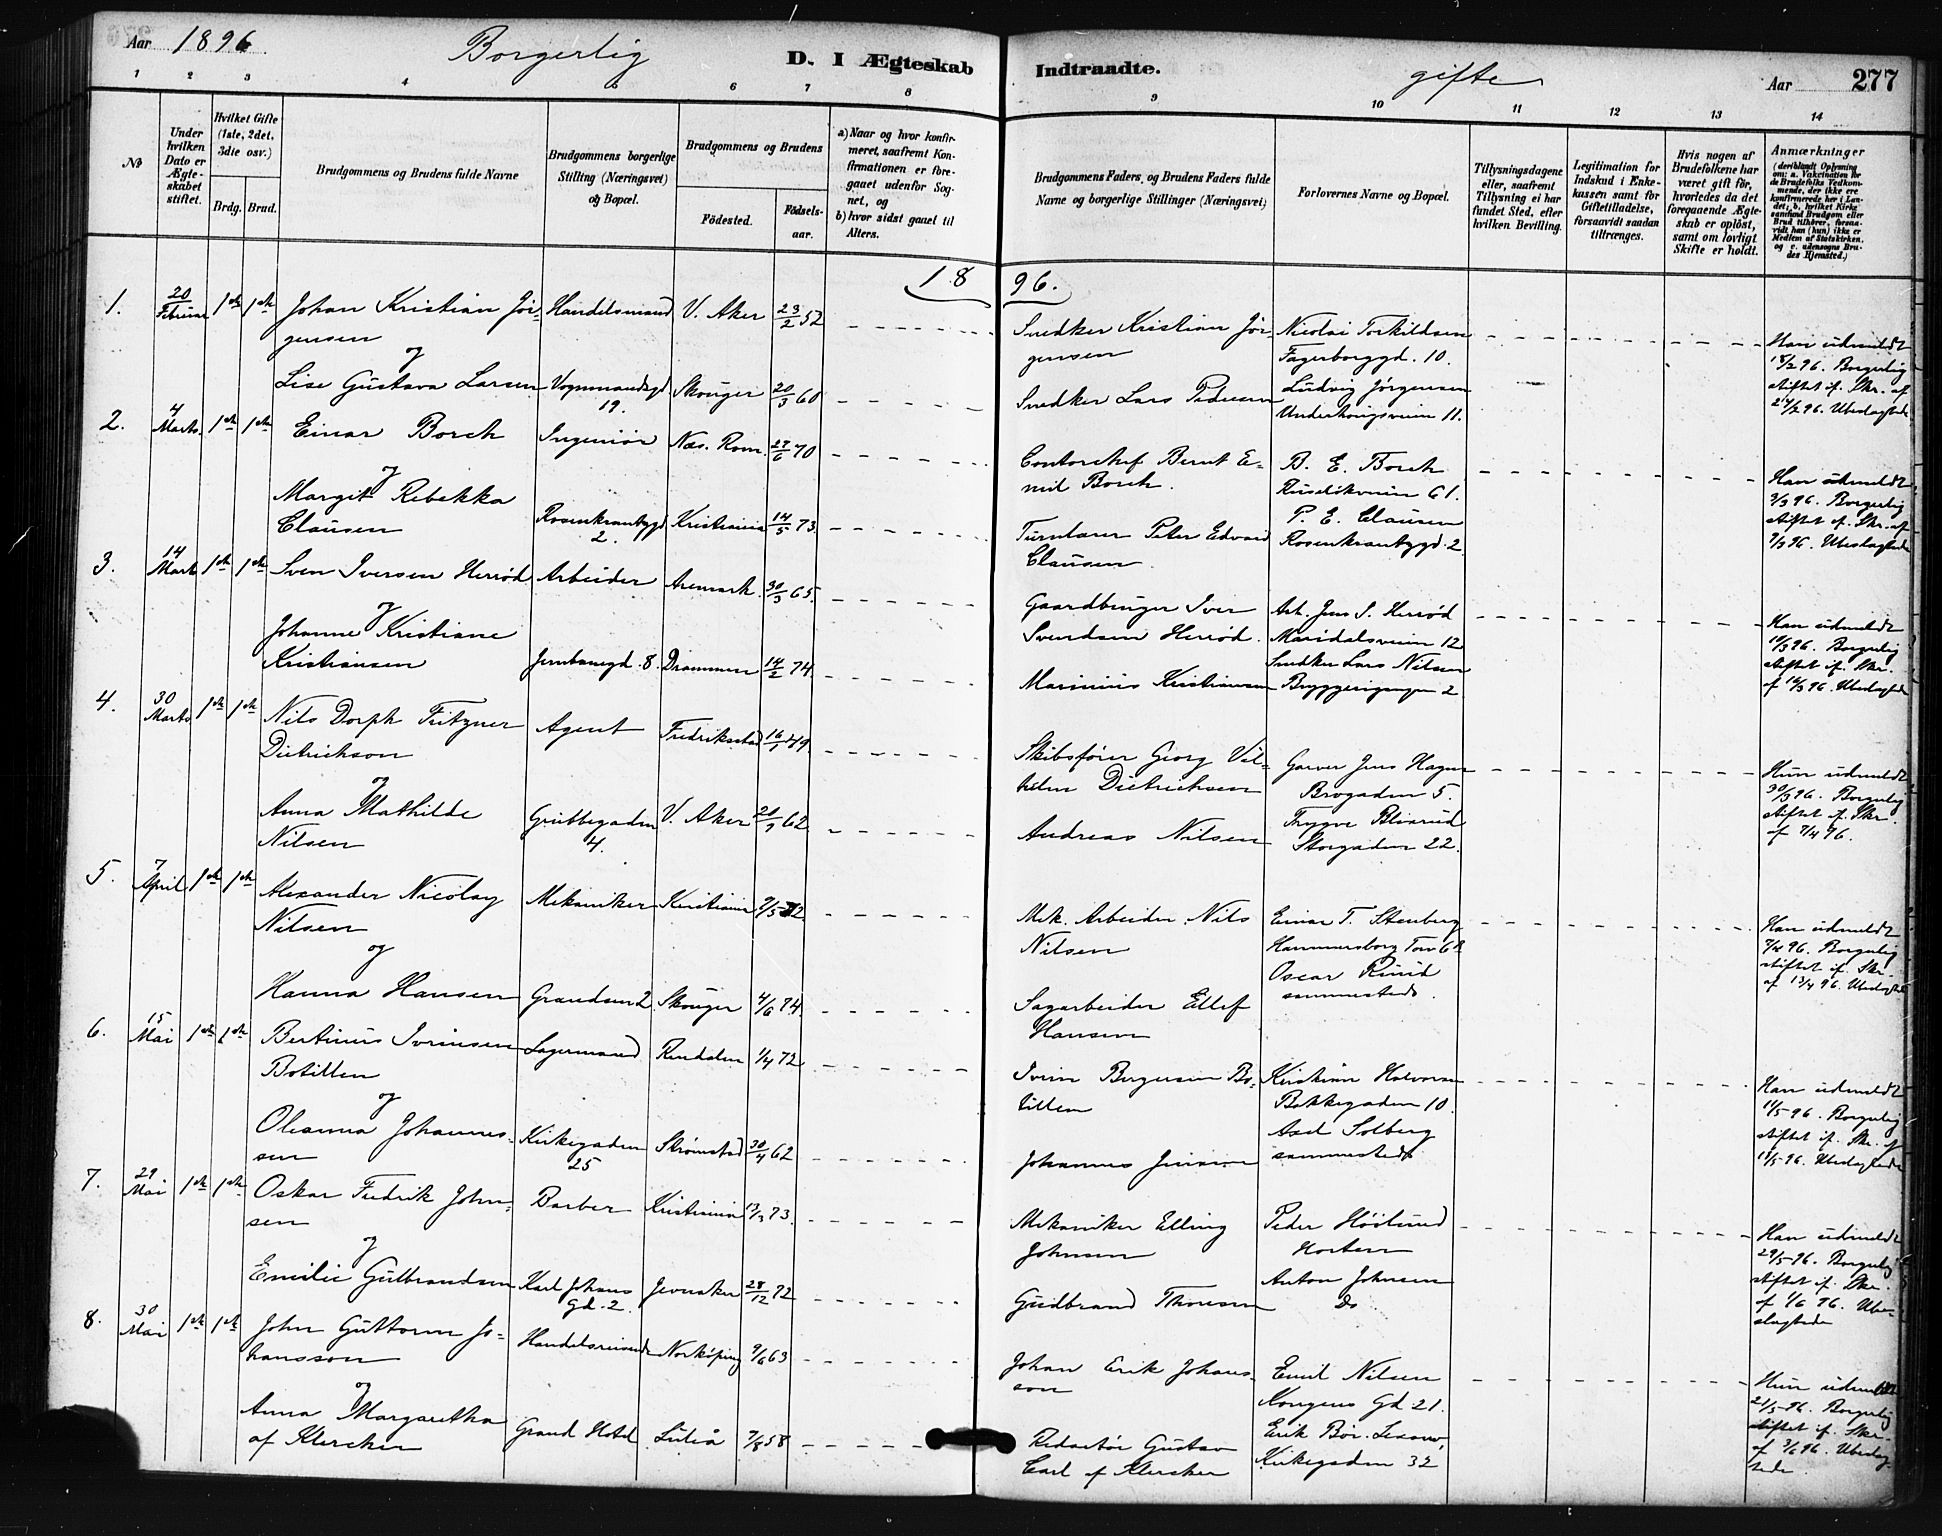 Aar 1896. Borgerlig D. I Ægteskab Indtraadte. gifte Aar 277
1 2 3 4 5 6 7 8 9 10 11 12 13 14
No
Under hvilken Dato er Ægteskabet stiftet.
Hvilket Gifte (1ste, 2det, 3die osv.)
Brdg. Brud.
Brudgommens og Brudens fulde Navne
Brudgommens borgerlige Stilling (Næringsvei) og Bopæl.
Brudgommens og Brudens
Fødested. Fødselsaar.
a) Naar og hvor konfirmeret, saafremt Konfirmationen er foregaaet udenfor Sognet, og
b) hvor sidst gaaet til Alters.
Brudgommens Faders, og Brudens Faders fulde Navne og borgerlige Stillinger (Næringsvei)
Forlovernes Navne og Bopæl.
Tillysningsdagene eller, saafremt Tillysning ei har fundet Sted, efter hvilken Bevilling.
Legitimation for Indskud i Enkekassen samt for Giftetilladelse, forsaavidt saadan tiltrænges.
Hvis nogen af Brudefolkene har været gift før, hvorledes da det foregaaende Ægteskab er opløst, samt om lovligt Skifte er holdt.
Anmærkninger
(deriblandt Oplysning om: a. Vakcination for de Brudefolks Vedkommende, der ikke ere konfirmerede her i Landet; b. hvilket Kirkesamfund Brudgom eller Brud tilhører, forsaavidt han (hun) ikke er Medlem af Statskirken, og c. udensogns Brudes Hjemsted.)
1896.
1. 20/Februar 1ste 1ste Johan Kristian Jørgensen Handelsmand V. Aker 23/2 52
Snedker Kristian Jørgensen
Nicolai Torkildsen
Fagerborggd. 10.
og
Lise Gustava Larsen Vognmandsgd 19. Skouger 20/3 60
Snedker Lars Pedersen
Ludvig Jørgensen
Underhaugsveien 11.
Han udmeldt
18/2 96. Borgerlig
stiftet if. Skr. af
24/2 96. Ubeslægtede
2. 4 Marts. 1ste 1ste Einar Borch Ingeniør Næs. Rom. 27/6 70
Contorchef Bernt Emil Borch.
B. E. Borch
Ruseløkveien 61.
og
Margit Rebekka Clausen Rosenkrantzgd 2. Kristiania 14/5 73.
Turnlærer Peter Edvard Clausen.
P. E. Clausen
Rosenkrantzgd. 2
Han udmeldt
3/3 96. Borgerlig
stiftet if. Skr. af
7/3 96. Ubeslægtede
3. 14 Marts 1ste 1ste Sven Iversen Herrød Arbeider Aremark. 30/3 65.
Gaardbruger Iver Svendsen Herrød.
Arb. Jens S. Herrød
Maridalsveien 12
og
Johanne Kristiane Kristiansen Jernbanegd. 8. Drammen 14/2 74.
Marinius Kristiansen
Snedker Lars Nilsen
Bryggerigangen 2
Han udmeldt
11/3 96. Borgerlig
stiftet if. Skr.
af 16/3 96. Ubeslægtede
4. 30 Marts 1ste 1ste Nils Dorph Fritzner Dietrichson Agent Fredrikstad 16/1 49.
Skibsfører Georg Vilhelm Dietrichson
Garver Jens Hagen
Brogaden 5.
og
Anna Mathilde Nilsen Grubbegaden 4. V. Aker 20/9 62
Andreas Nilsen
Trygve Blixrud
Storgaden 22.
Hun udmeldt
30/3 96. Borgerlig
stiftet if. Skr.
af 7/4 96.
5. 7 April 1ste 1ste Alexander Nicolay Nilsen Mekaniker Kristiania 9/5 72
Mek. Arbeider Nils Nilsen
Einar T. Stenberg
Hammersborg Torv 6
og
Hanna Hansen Grændsen 2 Skouger 4/6 74.
Sagarbeider Ellef Hansen
Oscar Ruud
sammesteds.
Han udmeldt
7/4 96. Borgerlig
stiftet if. Skr.
af 13/4 96. Ubeslægtede
6. 15 Mai 1ste 1ste Bertinus Iverinsen Botillen Lagermand Rendalen 1/4 72
Iverin Birgersen Botillen
Kristian Halvorsen
Bakkegaden 10.
og
Oleanna Johannessen Kirkegaden 25 Strømstad 30/4 62
Johannes
Axel Solberg
sammesteds
Han udmeldt
11/5 96. Borgerlig
stiftet if. Skr. af
18/5 96. Ubeslægtede
7. 29 Mai 1ste 1ste Oskar Fredrik Johnsen Barber Kristiania 13/3 73.
Mekaniker Elling Johnsen
Peder Høilund
Horten
og
Emilie Gulbrandsen Karl Johans Gd. 2. Jevnaker 28/12 72
Gudbrand Thoresen
Anton Johnsen
Do
Han udmeldt
29/5 96. Borgerlig
stiftet if. Skr.
af 1/6 96. Ubeslægtede
8. 30 Mai 1ste 1ste John Guttorm Johansson Handelsreisende Norkøping 9/6 63
Johan Erik Johansson
Emil Nilsen
Kongens Gd 21.
og
Anna Margaretha af Klercker Grand Hotel Luleå 7/8 58
Redactør Gustav Carl af Klercker
Erik
Kirkegaden 32
Hun udmeldt
21/5 96. Borgerlig
stiftet if. Skr.
af 3/6 96. Ubeslægtede.